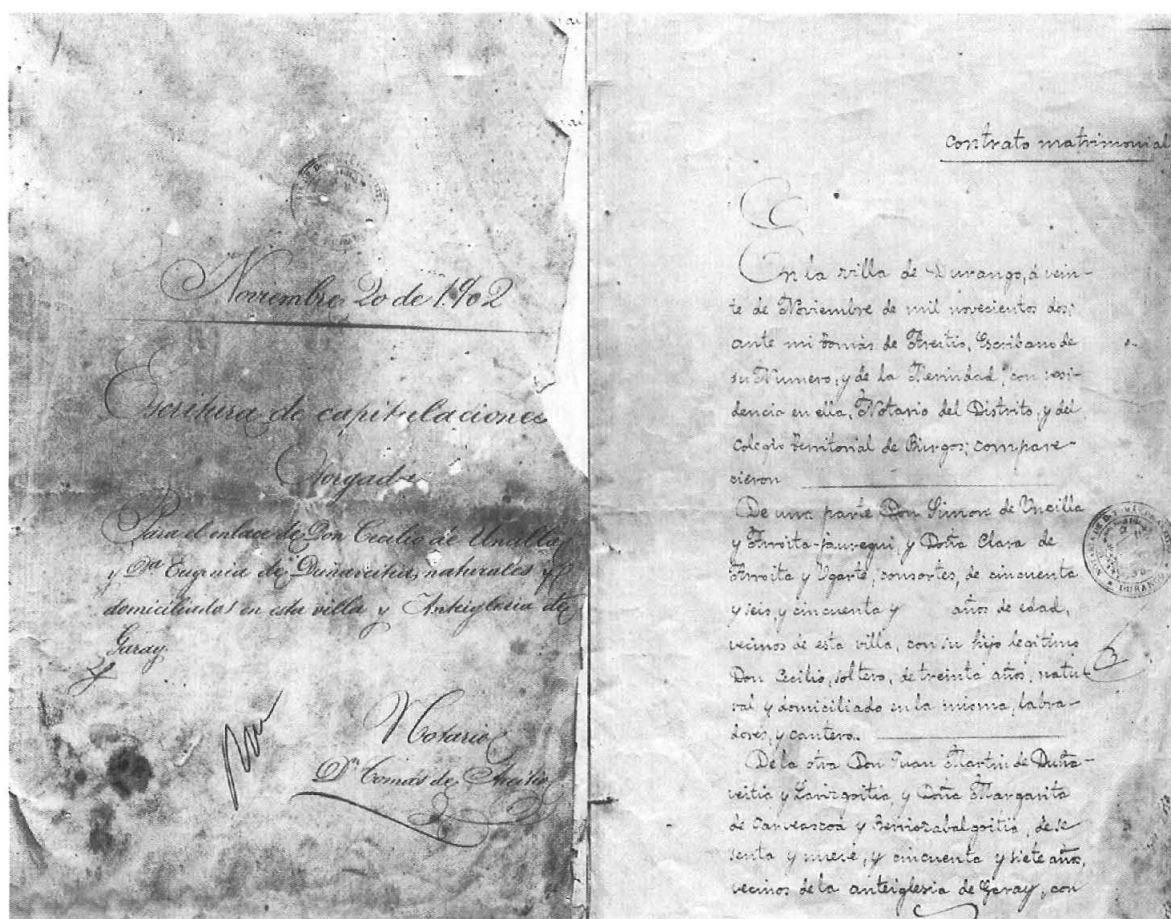 Noviembre 20 de 1902
Escritura de capitulaciones
Otorgada
Para el enlace de Don Cecilio de Uncilla
y Dª Eugenia de Duñaveitia, naturales y
domiciliados en esta villa y Anteiglesia de
Garay
Notario
Dn Tomás de Areitio
Contrato matrimonial
En la villa de Durango, á vein-
te de Noviembre de mil novecientos dos;
ante mi Tomás de Areitio, Escribano de
su Numero, y de la Merindad, con resi-
dencia en ella, Notario del Distrito, y del
Colegio Territorial de Burgos; compare-
cieron
De una parte Don Simon de Uncilla
y Arroita-Jauregui, y Doña Clara de
Arroita y Ugarte, consortes, de cincuenta
y seis, y cincuenta y años de edad,
vecinos de esta villa, con su hijo legitimo
Don Cecilio, soltero, de treinta años, natu-
ral y domiciliado en la misma, labra-
dores, y cantero.
De la otra Don Juan Martin de Duña-
veitia y Larizgoitia, y Doña Margarita
de y Berriozabalgoitia, de se
senta y nueve, y cincuenta y siete años,
vecinos de la anteiglesia de Garay, con
DURANGO